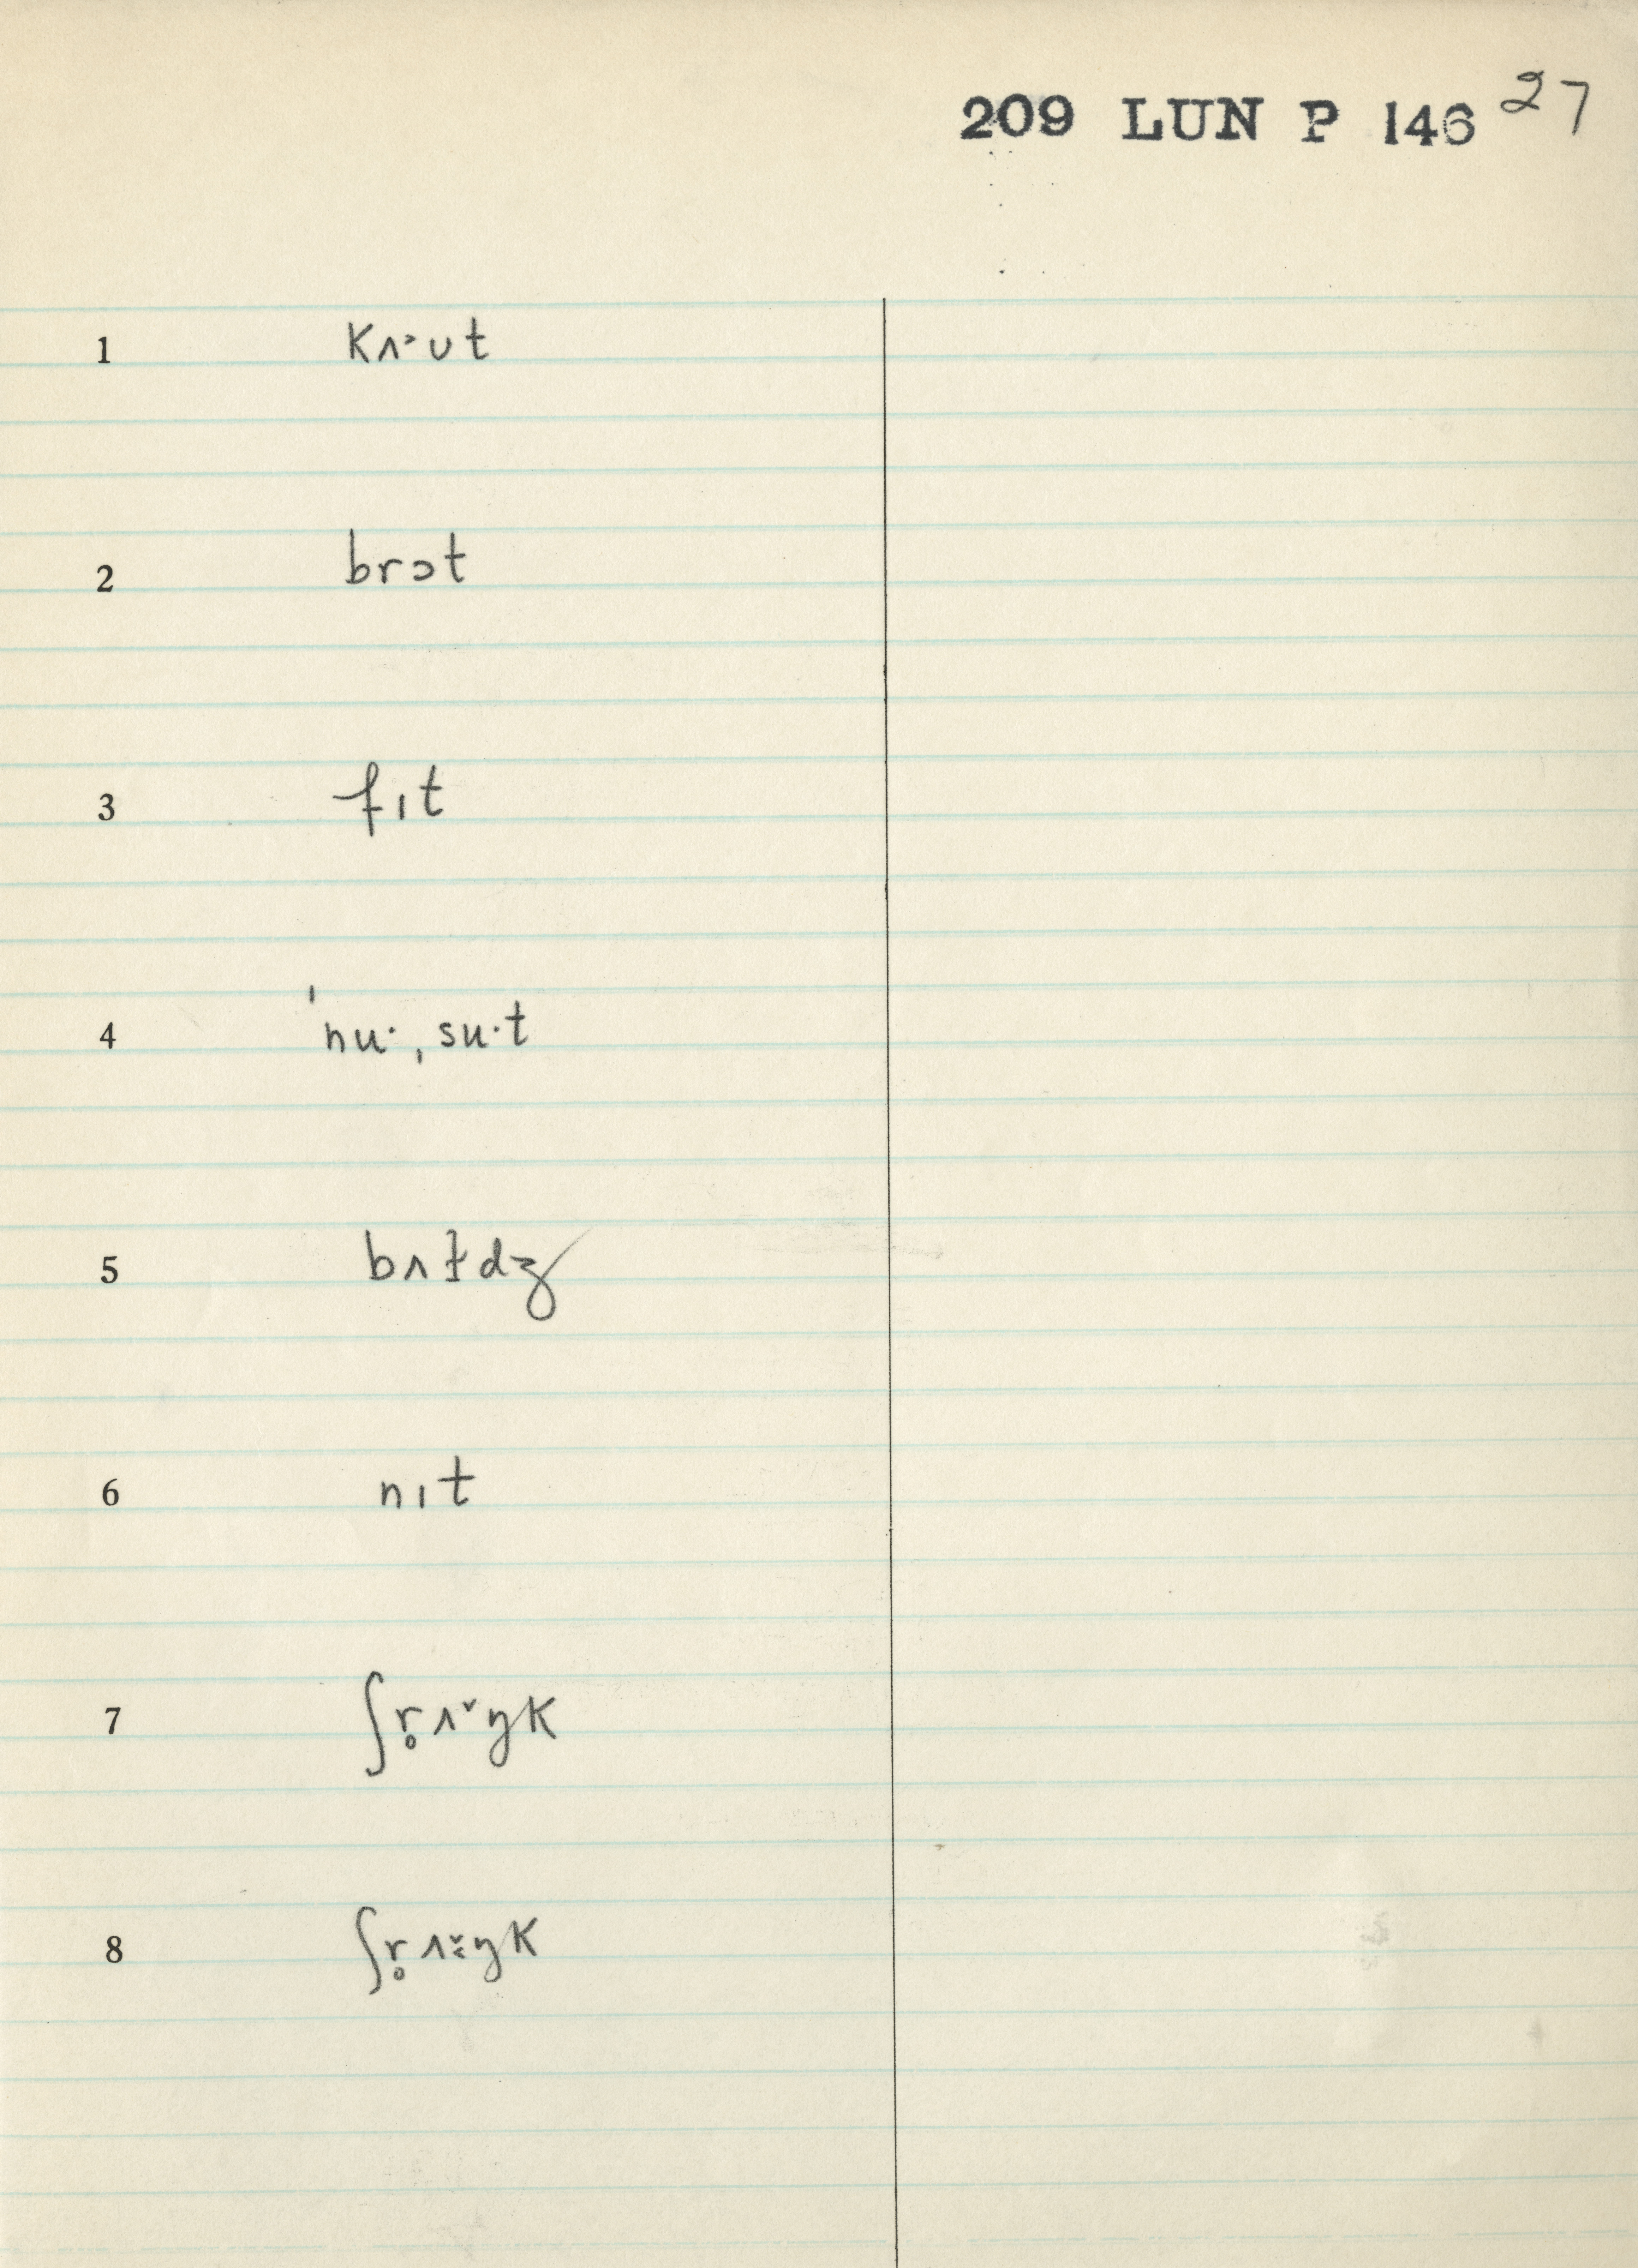 209 LUN P 146 27
1 kʌ˒ʊt
2 brɔt
3 fɪt
4 ˈnu·ˌsu·t
5 bʌɫdʒ
6 nɪt
7 ʃr̥ʌ˅ŋk
8 ʃr̥ʌ˅ŋk